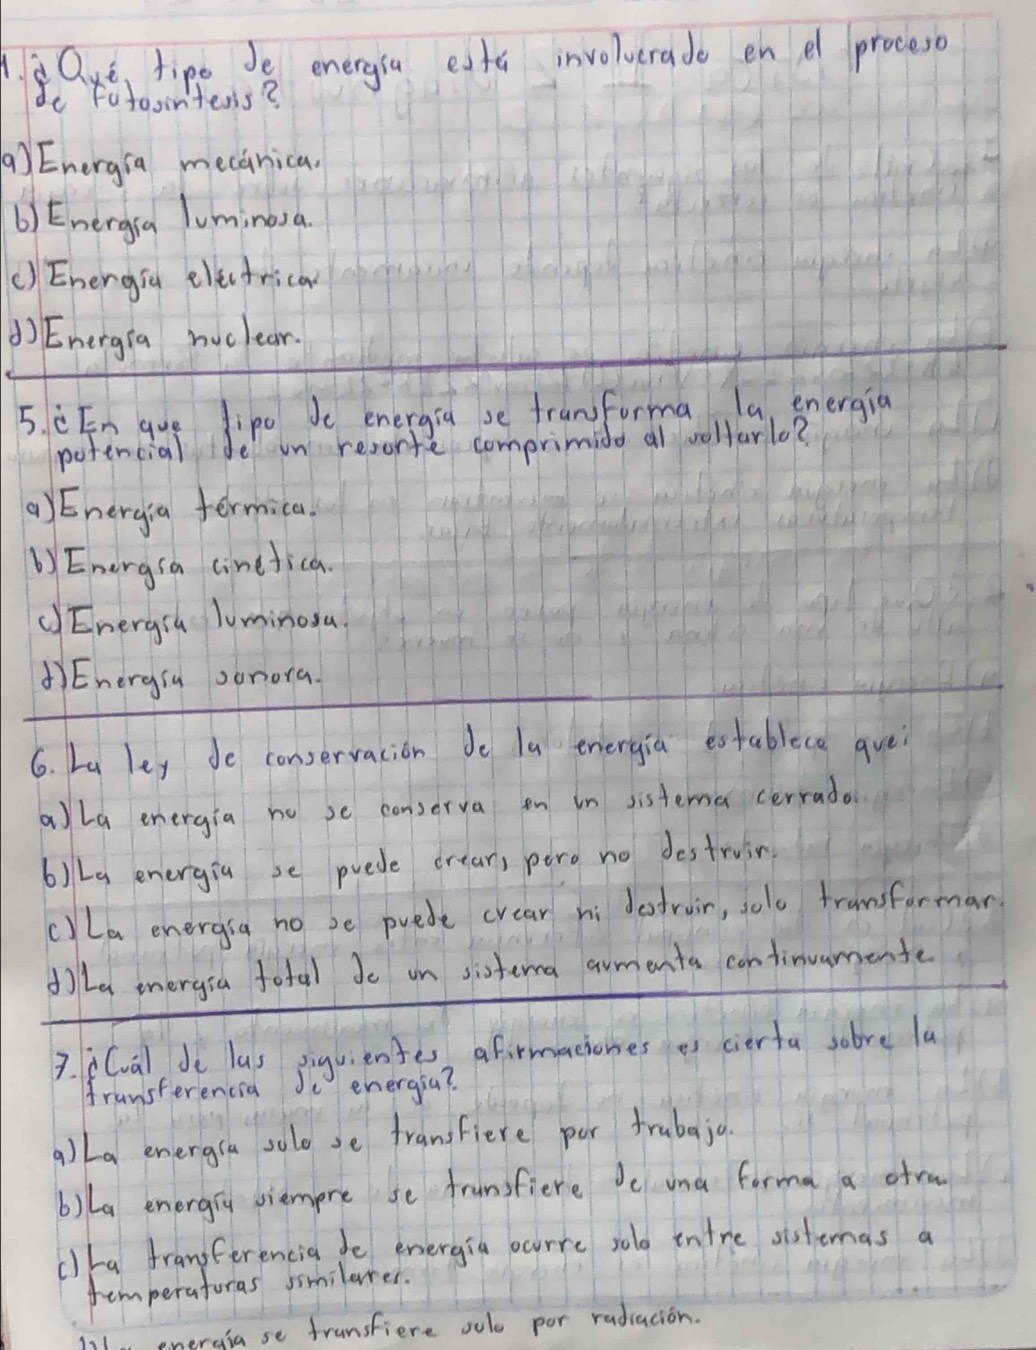 1. ¿Qué tipo de energía está involucrado en el proceso
de fotosíntesis?
a) Energía mecánica.
b) Energía luminosa.
c) Energía eléctrica
d) Energía nuclear.
5. ¿En que tipo de energía se transforma la energía
potencial de un resorte comprimido al soltarlo?
a) Energía térmica.
b) Energía cinética.
c) Energía luminosa.
d) Energía sonora.
6. La ley de conservación de la energía establece que:
a) La energía no se conserva en un sistema cerrado.
b) La energía se puede crear, pero no destruir.
c) La energía no se puede crear ni destruir, solo transformar.
d) La energía total de un sistema aumenta continuamente.
7. ¿Cuál de las siguientes afirmaciones es cierta sobre la
transferencia de energía?
a) La energía solo se transfiere por trabajo.
b) La energía siempre se transfiere de una forma a otra.
c) La transferencia de energía ocurre solo entre sistemas a
temperaturas similares.
energía se transfiere solo por radiación.